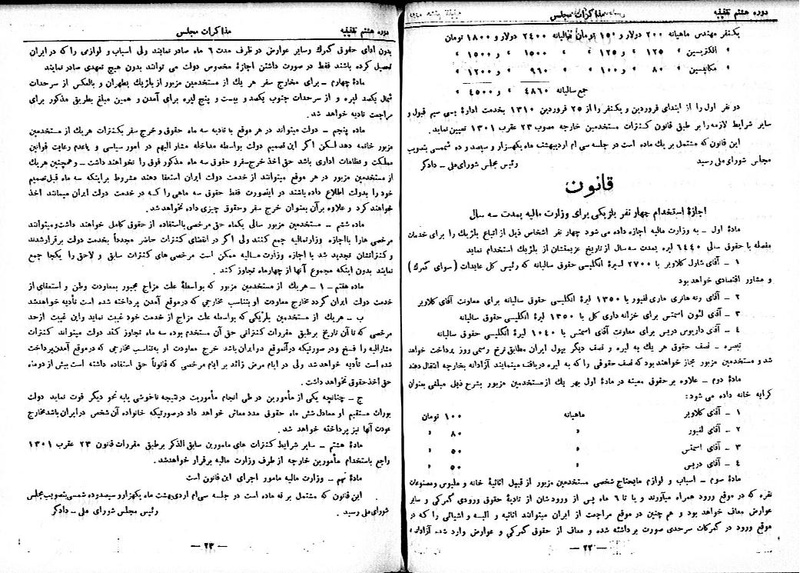 دوره هشتم تقنینیه
مذاکرات مجلس
یکنفر مهندس ماهیانه ۲۰۰ دولار و ۱۵۰ تومان سالیانه ۲۴۰۰ دولار و ۱۸۰۰ تومان
الکتریسین » ۱۲۵ » ۱۲۵ » ۱۵۰۰ » ۱۵۰۰ »
مکانیسین » ۸۰ » و ۱۰۰ » ۹۶۰ » و ۱۲۰۰ »
جمع سالیانه ۴۸۶۰ » ۴۵۰۰ »
دو نفر اول را از ابتدای فروردین و یکنفر را از ۲۵ فروردین ۱۳۱۰ بخدمت ادارهٔ بی سیم قبول و
سایر شرایط لازمه را بر طبق قانون کنترات مستخدمین خارجه مصوب ۲۳ عقرب ۱۳۰۱ تعیین نماید.
این قانون که مشتمل بر یک ماده است در جلسه سی ام اردیبهشت ماه یکهزار و سیصد و ده شمسی بتصویب
مجلس شورای ملی رسید
رئیس مجلس شورای ملی - دادگر
قانون
اجازهٔ استخدام چهار نفر بلژیکی برای وزارت مالیه بمدت سه سال
مادهٔ اول - به وزارت مالیه اجازه داده می شود چهار نفر اشخاص ذیل از اتباع بلژیک را برای خدمات
مفصله با حقوق سالی ۶۴۴۰ لیره بمدت سه سال از تاریخ عزیمتشان از بلژیک استخدام نماید
۱ - آقای شارل کلاویر با ۲۷۰۰ لیرهٔ انگلیسی حقوق سالیانه که رئیس کل عایدات (سوای گمرک)
و مشاور اقتصادی خواهد بود
۲ - آقای رنه هانری ماری لفبور با ۱۳۵۰ لیرهٔ انگلیسی حقوق سالیانه برای معاونت آقای کلاویر
۳ - آقای لئون اسمتس برای خزانه داری کل با ۱۳۵۰ لیرهٔ انگلیسی حقوق سالیانه
۴ - آقای داریوس دریس برای معاونت آقای اسمتس با ۱۰۴۰ لیرهٔ انگلیسی حقوق سالیانه
تبصره - نصف حقوق هر یک به لیره و نصف دیگر بپول ایران مطابق نرخ رسمی روز پرداخت خواهد
شد و مستخدمین مزبور مجاز خواهند بود که نصف حقوقی را که به لیره دریافت مینمایند آزادانه بخارجه انتقال دهند
مادهٔ دوم - علاوه بر حقوق معینه در مادهٔ اول بهر یک از مستخدمین مزبور بشرح ذیل مبلغی بعنوان
کرایه خانه داده می شود:
۱ - آقای کلاویر ماهیانه ۱۰۰ تومان
۲ - آقای لفبور » ۸۰ »
۳ - آقای اسمتس » ۵۰ »
۴ - آقای دریس » ۵۰ »
مادهٔ سوم - اسباب و لوازم مایحتاج شخصی مستخدمین مزبور از قبیل اثاثیهٔ خانه و ملبوس و مصنوعات
نقره که در موقع ورود همراه میآورند و یا تا ۶ ماه پس از ورودشان از تأدیهٔ حقوق ورودی گمرکی و سایر
عوارض معاف خواهد بود و هم چنین در موقع مراجعت از ایران میتوانند اثاثیه و البسه و اشیائی را که در
موقع ورود در گمرکات سرحدی صورت برداشته شده و معاف از حقوق گمرکی و عوارض وارد شده آزادانه
— ۲۲ —
دوره هشتم تقنینیه
مذاکرات مجلس
بدون ادای حقوق گمرک وسایر عوارض در ظرف مدت ۶ ماه صادر نمایند ولی اسباب و لوازمی را که در ایران
تحصیل کرده باشند فقط در صورت داشتن اجازهٔ مخصوص دولت می توانند بدون هیچ تعهدی صادر نمایند
مادهٔ چهارم - برای مخارج سفر هر یک از مستخدمین مزبور از بلژیک بطهران و بالعکس از سرحدات
شمال یکصد لیره و از سرحدات جنوب یکصد و بیست و پنج لیره برای آمدن و همین مبلغ بطریق مذکور برای
مراجعت تادیه خواهد شد.
مادهٔ پنجم - دولت میتواند در هر موقع با تادیه سه ماه حقوق و خرج سفر بکنترات هریک از مستخدمین
مزبور خاتمه دهد لیکن اگر این تصمیم دولت بواسطه مداخله مشار الیهم در امور سیاسی و یا عدم رعایت قوانین
مملکت و نظامات اداری باشد حق اخذ خرج سفر و حقوق سه ماه مذکور فوق را نخواهند داشت - و همچنین هریک
از مستخدمین مزبور در هر موقع میتوانند از خدمت دولت ایران استعفا دهند مشروط براینکه سه ماه قبل تصمیم
خود را بدولت اطلاع داده باشند در اینصورت فقط حقوق سه ماهی را که در خدمت دولت ایران میمانند اخذ
خواهند کرد و علاوه برآن بعنوان خرج سفر وحقوق چیزی داده نخواهد شد.
مادهٔ ششم - مستخدمین مزبور سالی یکماه حق مرخصی با استفاده از حقوق کامل خواهند داشت و میتوانند
مرخصی هارا با اجازه وزارتمالیه جمع کنند ولی اگر در انقضای کنترات حاضر مجدداً بخدمت دولت برقرار شدند
و کنتراتشان تجدید شد با اجازه وزارت مالیه ممکن است مرخصی های کنترات سابق و لاحق را یکجا جمع
نمایند بدون اینکه مجموع آنها از چهارماه تجاوز کند.
مادهٔ هفتم - ا - هریک از مستخدمین مزبور که بواسطهٔ علت مزاج مجبور بمعاودت وطن و استعفای از
خدمت دولت ایران گردد مخارج معاودت او بتناسب مخارجی که در موقع آمدن پرداخته شده است تأدیه خواهد شد
ب - هریک از مستخدمین بلژیکی که بواسطه علت مزاج از خدمت خود غیبت نماید و این غیبت از حد
مرخصی که تا آن تاریخ برطبق مقررات کنتراتی حق آن مستخدم بوده سه ماه تجاوز کند دولت میتواند کنترات
مشارالیه را فسخ و در صورتیکه در آنموقع در ایران باشد خرج معاودت او بتناسب مخارجی که در موقع آمدن پرداخت
شده است تأدیه خواهد شد ولی در ایام مرض زائد بر ایام مرخصی که قانوناً حق استفاده داشته است بیش از دو ماه
حق اخذ حقوق نخواهد داشت.
ج - چنانچه یکی از مأمورین در طی انجام مأموریت در نتیجه ناخوشی یا به نحو دیگر فوت نماید دولت
بوراث مستقیم او معادل شش ماه حقوق مدد معاش خواهد داد در صورتیکه خانواده آن شخص در ایران باشد مخارج
عودت آنها نیز پرداخته خواهد شد.
مادهٔ هشتم - سایر شرایط کنترات های مامورین سابق الذکر برطبق مقررات قانون ۲۳ عقرب ۱۳۰۱
راجع باستخدام مأمورین خارجه از طرف وزارت مالیه برقرار خواهد شد.
مادهٔ نهم - وزارت مالیه مامور اجرای این قانون است
این قانون که مشتمل بر نه ماده است در جلسه سی ام اردیبهشت ماه یکهزار و سیصد و ده شمسی بتصویب مجلس
شورای ملی رسید.
رئیس مجلس شورای ملی - دادگر
— ۲۳ —